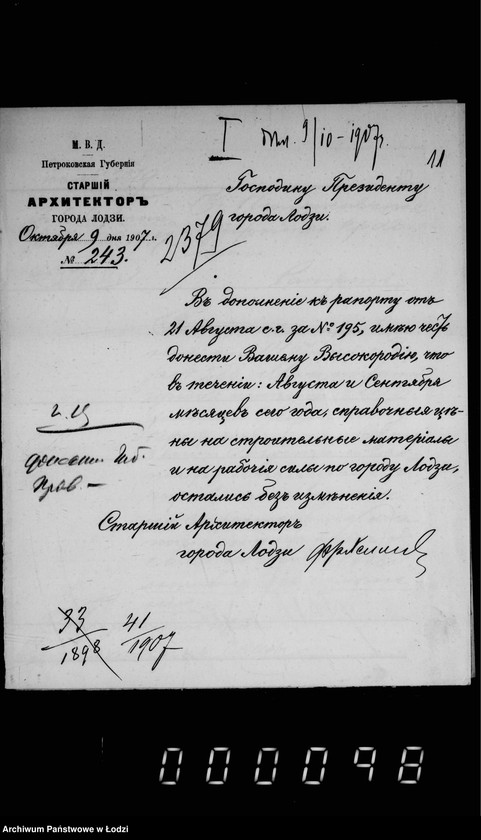 I 9/10-1907г.
11
М. В. Д.
Петроковская Губернія
СТАРШІЙ
АРХИТЕКТОРЪ
ГОРОДА ЛОДЗИ.
Октября 9 дня 1907 г.
№ 243.
Господину Президенту
города Лодзи.
2379
Въ дополненіе къ рапорту отъ
21 Августа с.г. за № 195, имѣю честь
донести Вашему Высокородію, что
въ теченіи: Августа и Сентября
мѣсяцевъ сего года, справочныя цѣ-
ны на строительные матеріалы
и на рабочія силы по городу Лодзи,
остались безъ измѣненія.
Старшій Архитекторъ
города Лодзи
33/1898
41/1907
000098
Archiwum Państwowe w Łodzi